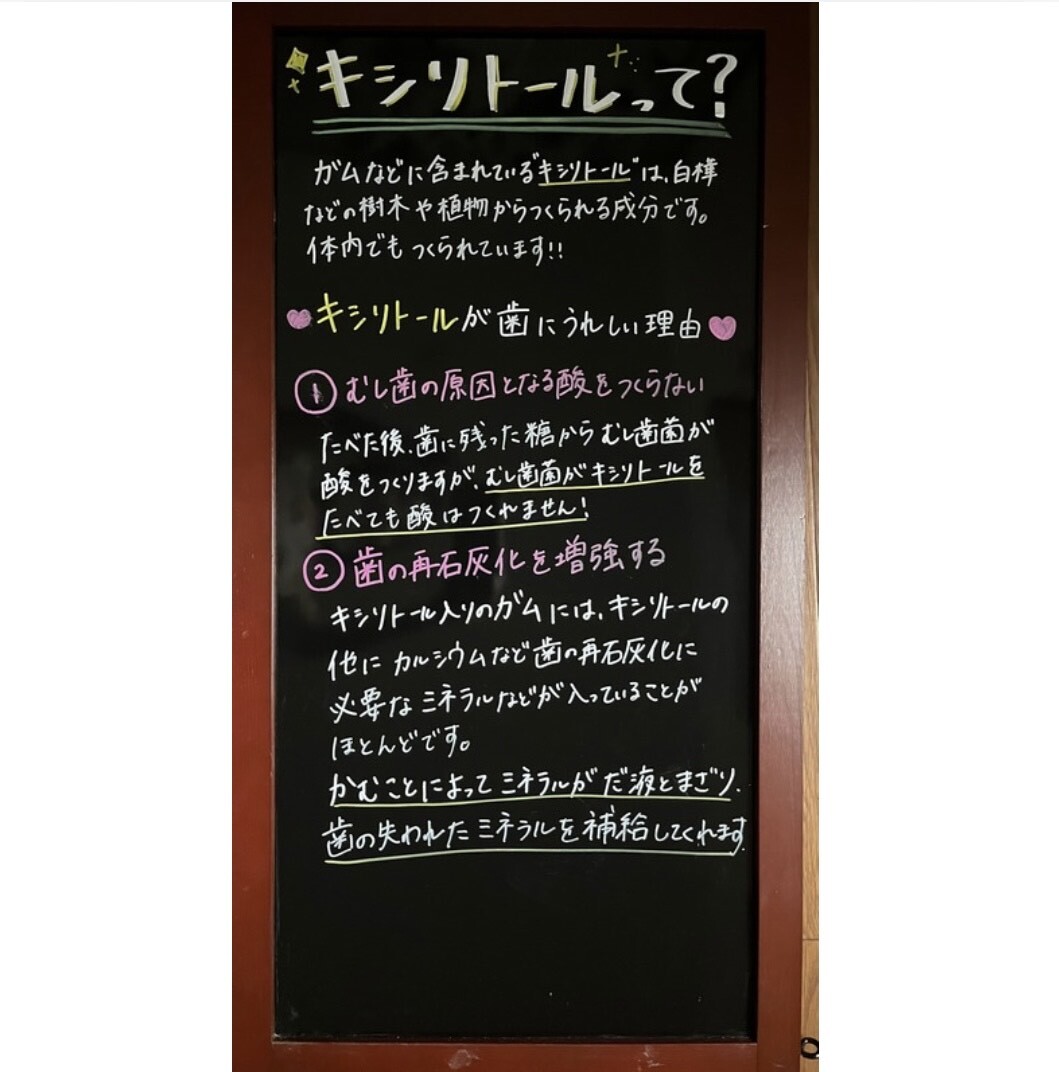 キシリトールって?
ガムなどに含まれている"キシリトール"は、白樺
などの樹木や植物からつくられる成分です。
体内でもつくられています!!
キシリトールが歯にうれしい理由
① むし歯の原因となる酸をつくらない
たべた後、歯に残った糖からむし歯菌が
酸をつくりますが、むし歯菌がキシリトールを
たべても酸はつくれません!
② 歯の再石灰化を増強する
キシリトール入りのガムには、キシリトールの
他にカルシウムなど歯の再石灰化に
必要なミネラルなどが入っていることが
ほとんどです。
かむことによってミネラルがだ液とまざり、
歯の失われたミネラルを補給してくれます